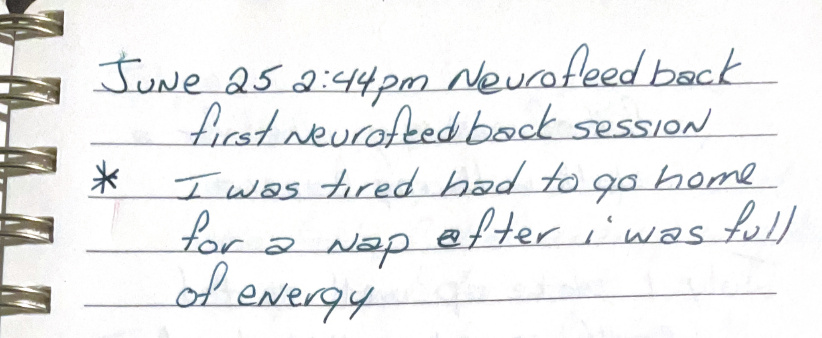 June 25 2:44pm Neurofeedback
first Neurofeedback session
* I was tired had to go home
for a nap after i was full
of energy